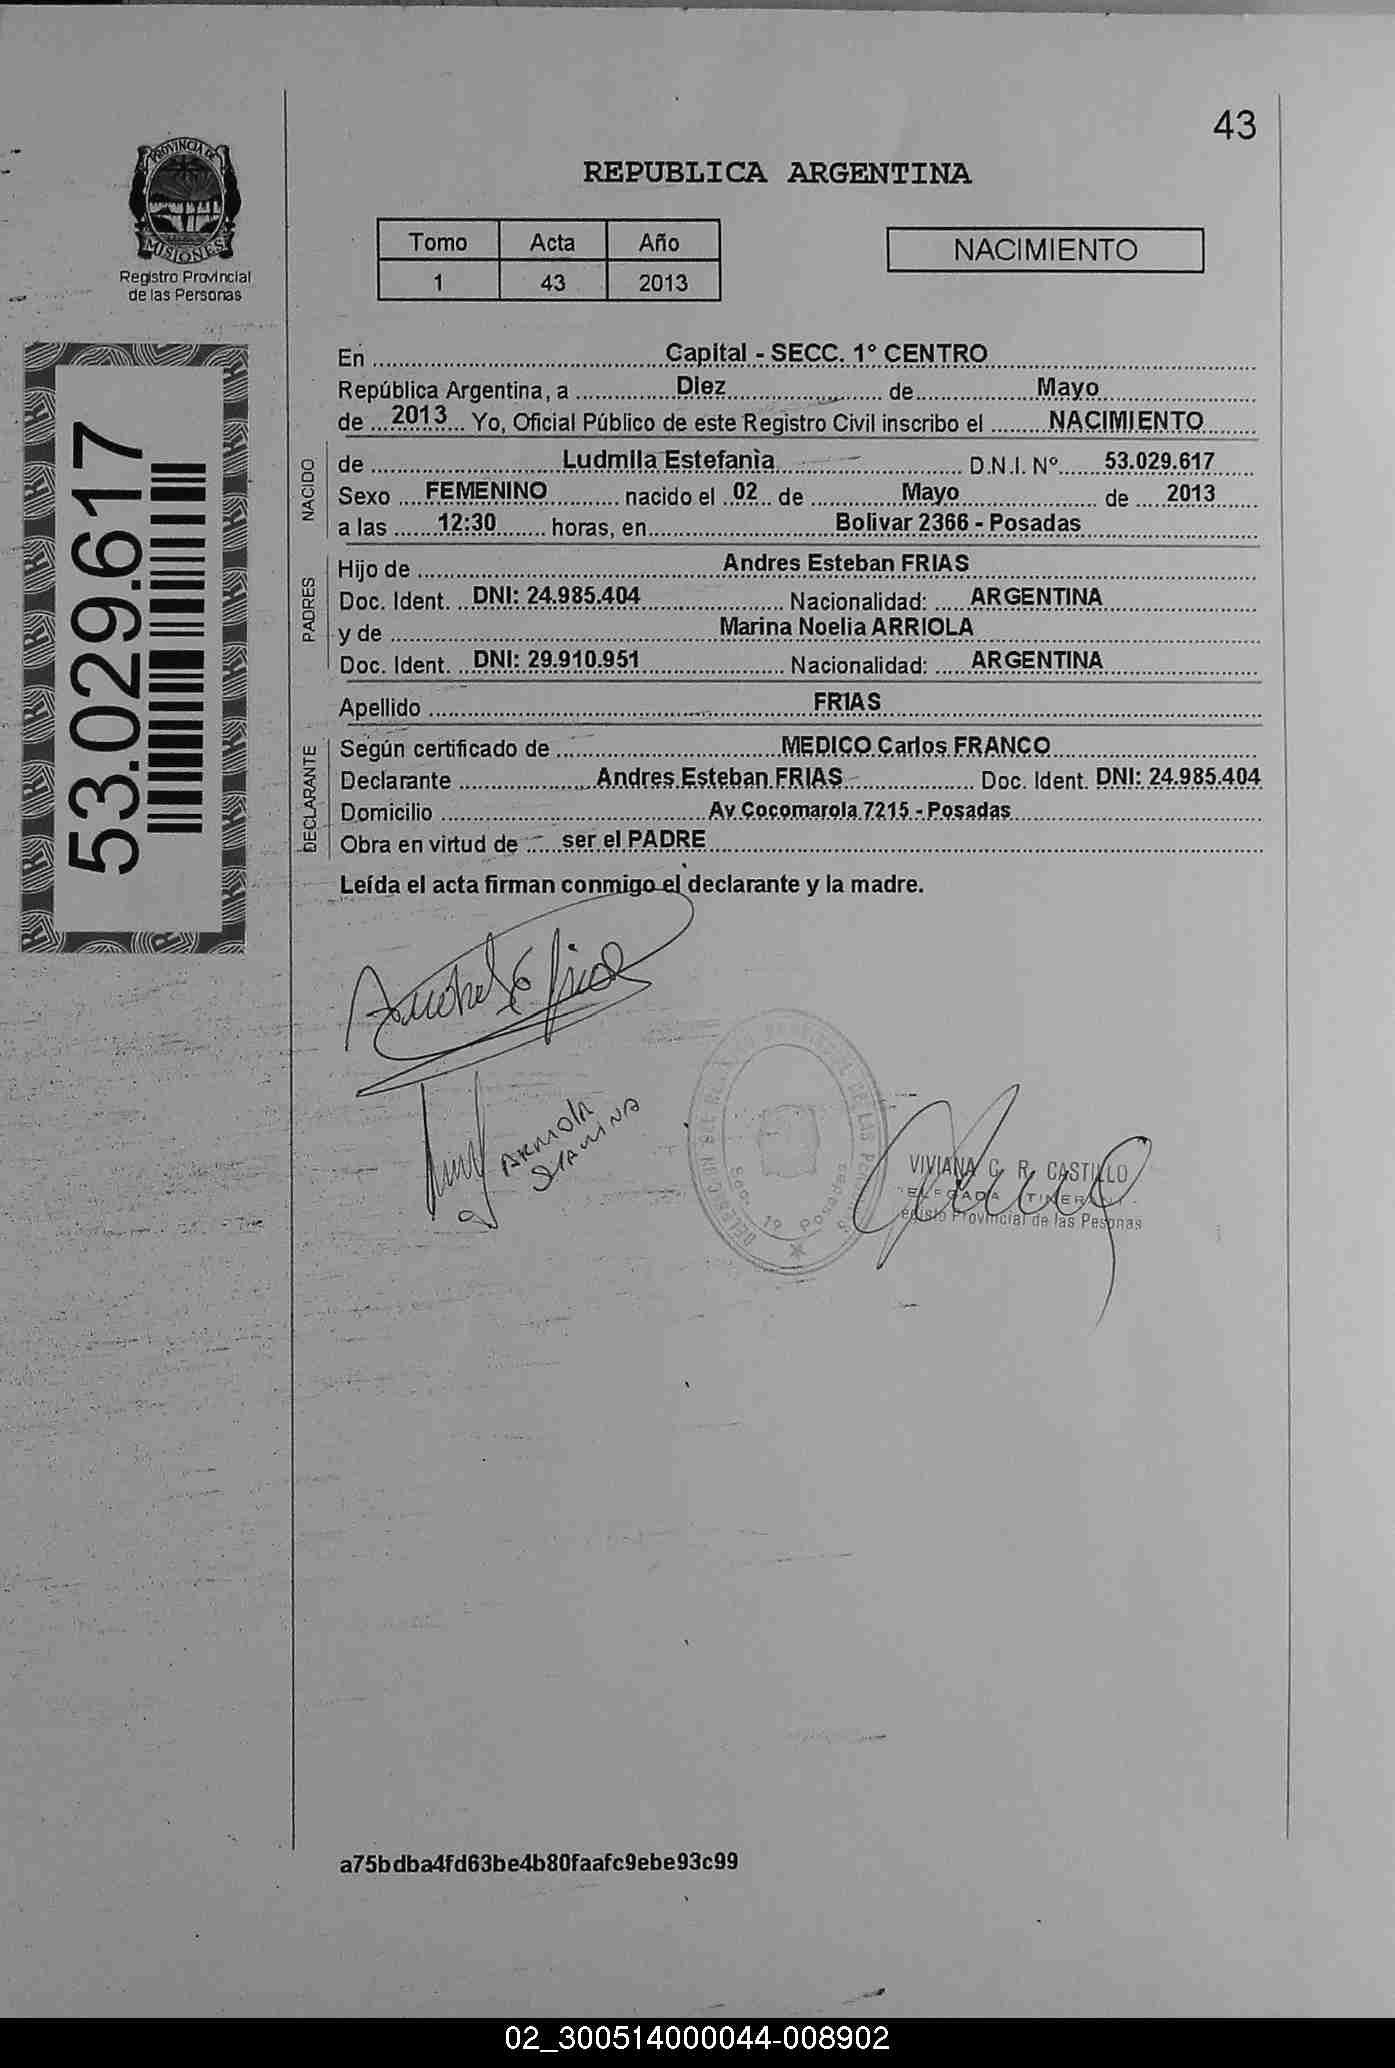 43
PROVINCIA DE
MISIONES
Registro Provincial
de las Personas
REPUBLICA ARGENTINA
Tomo Acta Año
1 43 2013
NACIMIENTO
53.029.617
En Capital - SECC. 1° CENTRO
República Argentina, a Diez de Mayo
de 2013 Yo, Oficial Público de este Registro Civil inscribo el NACIMIENTO
NACIDO
de Ludmila Estefanìa D.N.I. Nº 53.029.617
Sexo FEMENINO nacido el 02 de Mayo de 2013
a las 12:30 horas, en Bolivar 2366 - Posadas
PADRES
Hijo de Andres Esteban FRIAS
Doc. Ident. DNI: 24.985.404 Nacionalidad: ARGENTINA
y de Marina Noelia ARRIOLA
Doc. Ident. DNI: 29.910.951 Nacionalidad: ARGENTINA
Apellido FRIAS
DECLARANTE
Según certificado de MEDICO Carlos FRANCO
Declarante Andres Esteban FRIAS Doc. Ident. DNI: 24.985.404
Domicilio Av Cocomarola 7215 - Posadas
Obra en virtud de ser el PADRE
Leída el acta firman conmigo el declarante y la madre.
Secc. 1ª Posadas
VIVIANA C. R. CASTILLO
Provincial de las Pesonas
a75bdba4fd63be4b80faafc9ebe93c99
02_300514000044-008902